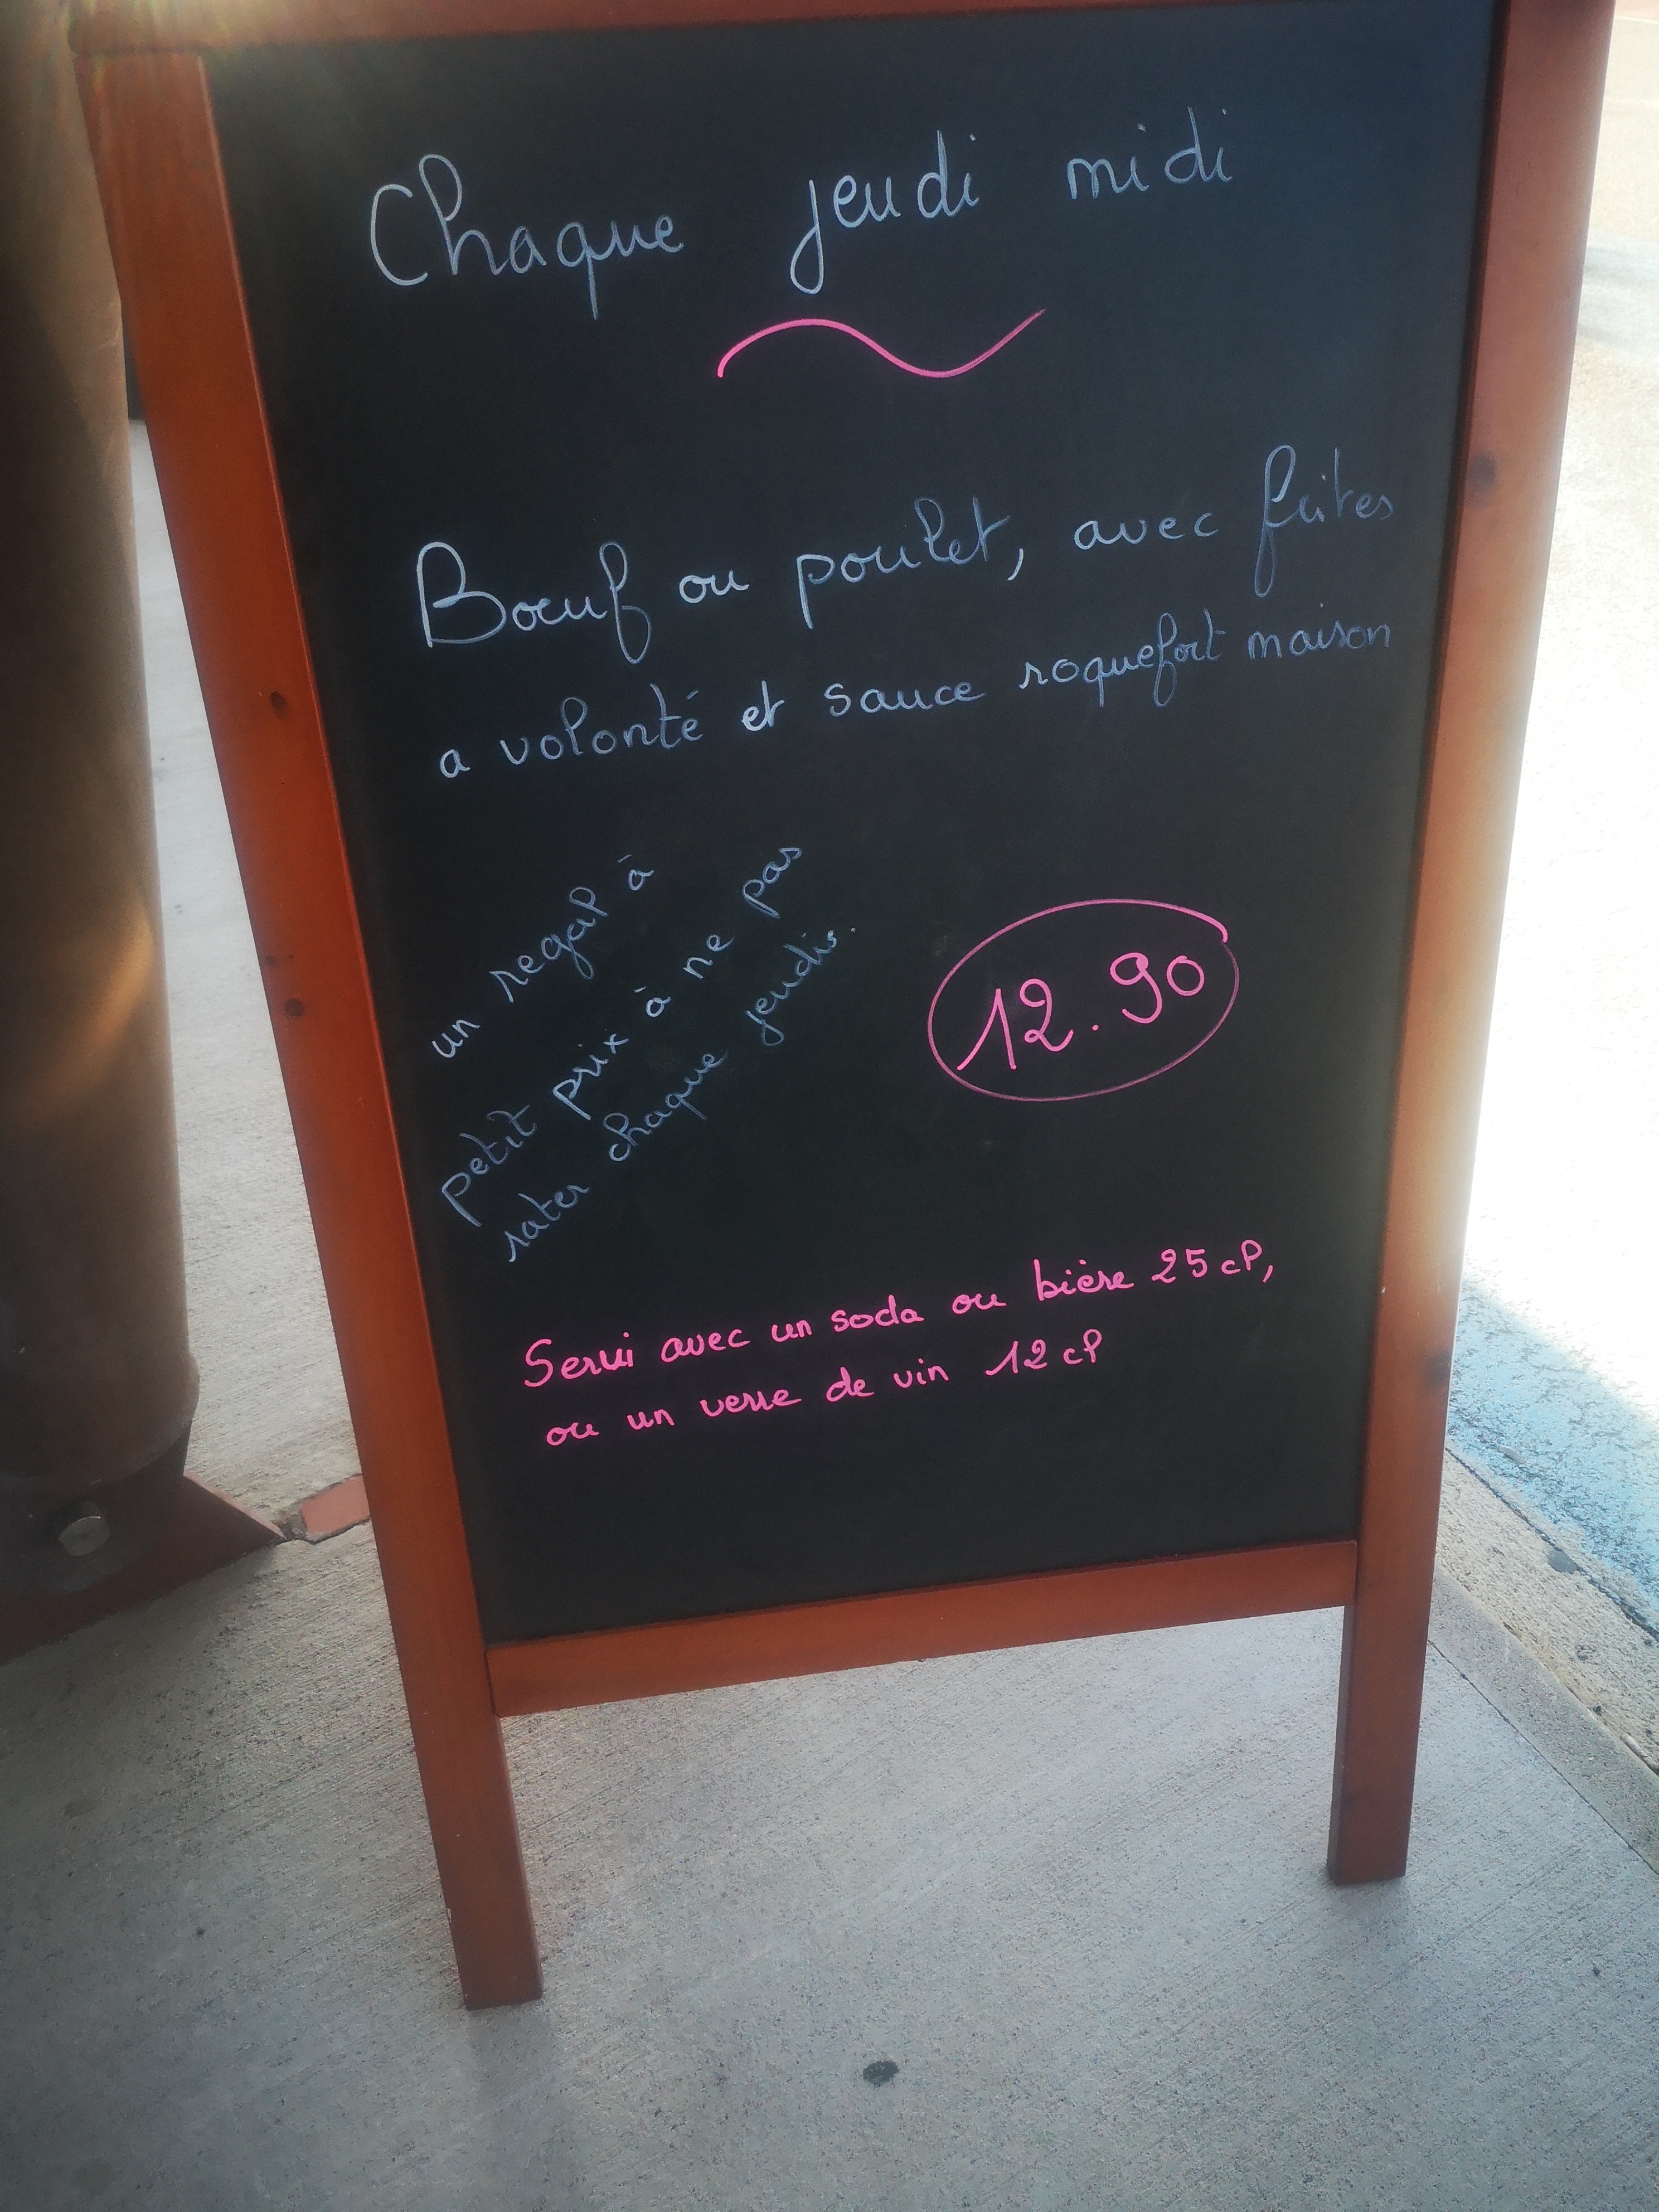 Chaque jeudi midi
Bœuf ou poulet, avec frites
a volonté et sauce roquefort maison
un regal à
petit prix à ne pas
rater chaque jeudis.
12.90
Servi avec un soda ou bière 25 cl,
ou un verre de vin 12 cl